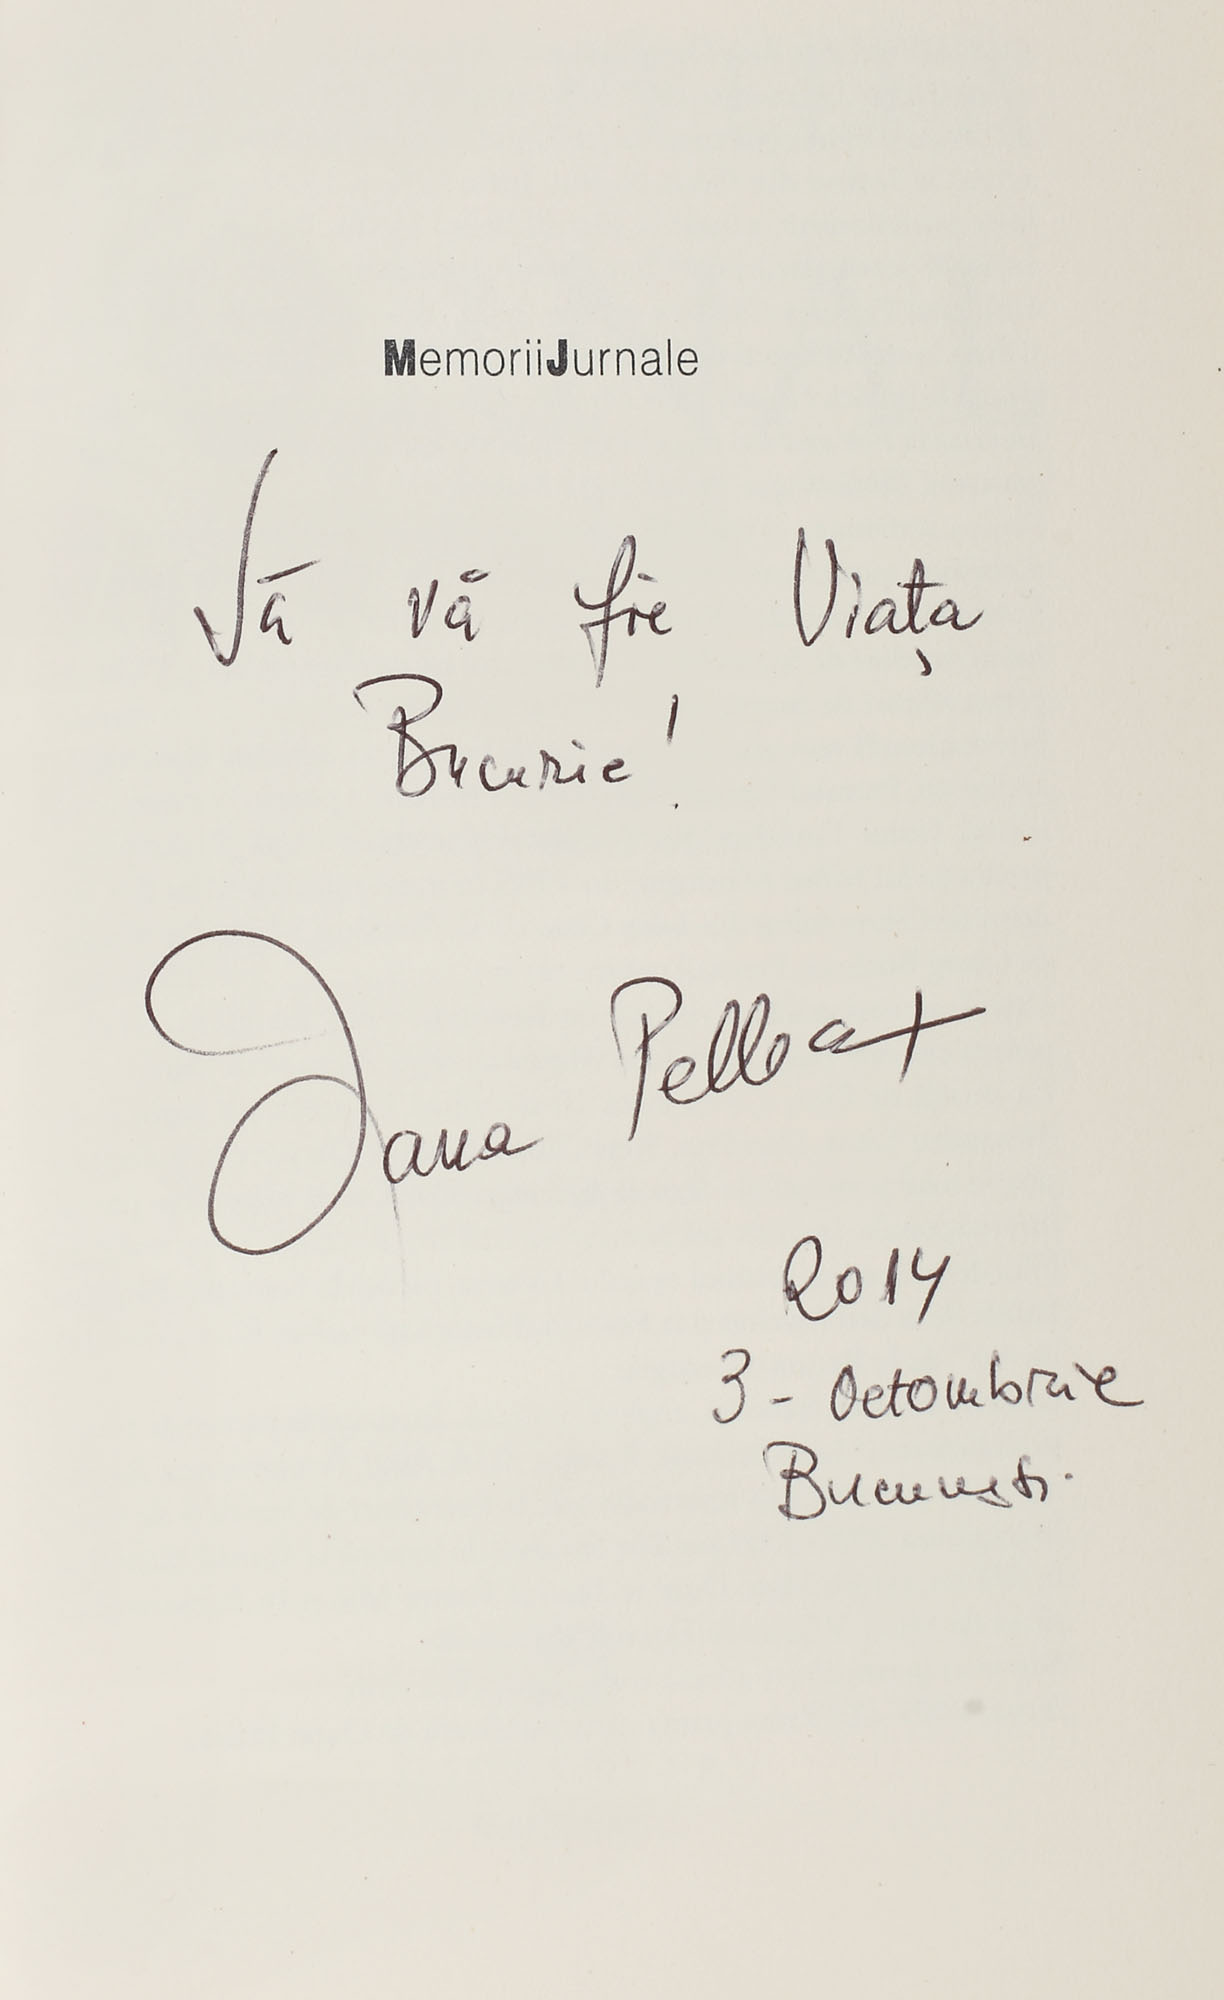 MemoriiJurnale
Să vă fie Viața
Bucurie!
Oana Pellea
2014
3 - Octombrie
București.